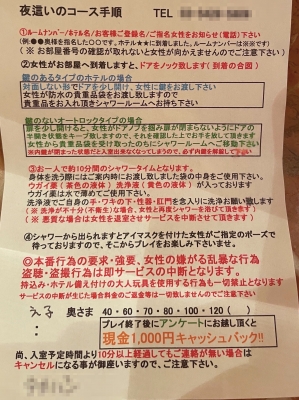 夜這いのコース手順 TEL
①ルームナンバー/ホテル名/お客様ご登録名/ご指名女性をお知らせ(電話)下さい
(例:●●奥様を指名した〇〇です。ホテル★★に到着しました。ルームナンバーは※※です)
※お部屋番号の確認が取れないと女性が向かえませんのでご注意下さい。
②女性がお部屋へ到着しますと、ドアをノック致します(到着の合図)
鍵のあるタイプのホテルの場合
対面しない形でドアを少し開けて、女性に鍵をお渡し下さい
女性が防水の貴重品袋をお渡し致しますので
貴重品をお入れ頂きシャワールームへお持ち下さい
鍵のないオートロックタイプの場合
扉を少し開けると、女性がドアノブを掴み扉が閉まらないようにドアの
半開き状態をキープ致しますので、それを確認した上でお手を放して頂きます
女性から貴重品袋を受け取ったのちにシャワールームへご移動下さい
※内鍵が閉まった状態だと入室出来なくなってしまうので、必ず内鍵を解錠して下さい
③お一人で約10分間のシャワータイムとなります。
身体を洗う際にはご案内時にお渡し致しました袋の中身をご使用下さい。
ウガイ薬(茶色の液体) 洗浄液(黄色の液体)が入っております
ウガイ薬は水で薄めてご使用下さい。
洗浄液でご自身の手・ワキの下・性器、肛門を念入りに洗浄お願い致します
(※ 洗浄が不十分(不衛生)な場合、女性が再度シャワーを浴びて頂きます)
(※ 悪質な場合は女性を退室させサービスを中断させて頂きます)
④シャワーから出られますとアイマスクを付けた女性がご指定のポーズで
待っておりますので、そこからプレイをお楽しみ下さいませ。
◎本番行為の要求・強要、女性の嫌がる乱暴な行為
盗聴・盗撮行為は即サービスの中断となります。
持込み・ホテル備え付けの大人の玩具を使用する行為も一切禁止となります
サービスの中断が生じた場合料金のご返金等は一切致しませんのでご注意下さい
奥さま 40・60・70・80・100・120( )
プレイ終了後にアンケートにお越し頂くと
現金1,000円キャッシュバック!!
尚、入室予定時間より10分以上経過してもご連絡が無い場合は
キャンセルになる事が御座いますので、ご注意下さい。